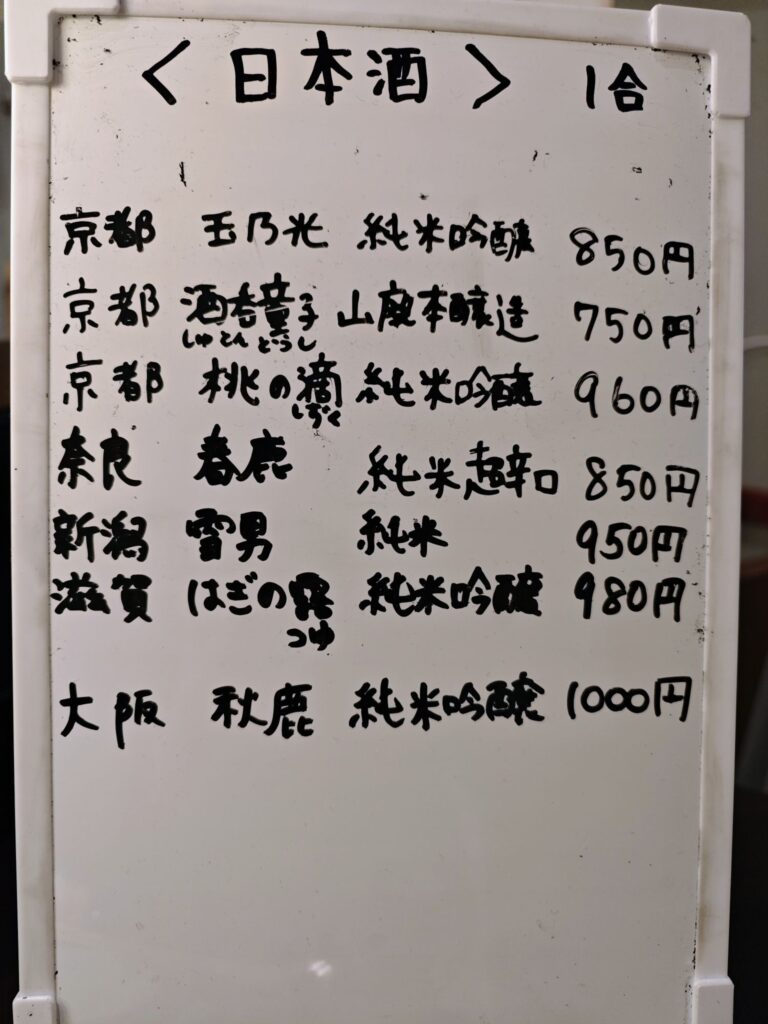 ＜日本酒＞ 1合
京都 玉乃光 純米吟醸 850円
京都 酒呑童子 山廃本醸造 750円
しゅとんどうじ
京都 桃の滴 純米吟醸 960円
しずく
奈良 春鹿 純米超辛口 850円
新潟 雪男 純米 950円
滋賀 はぎの露 純米吟醸 980円
つゆ
大阪 秋鹿 純米吟醸 1000円